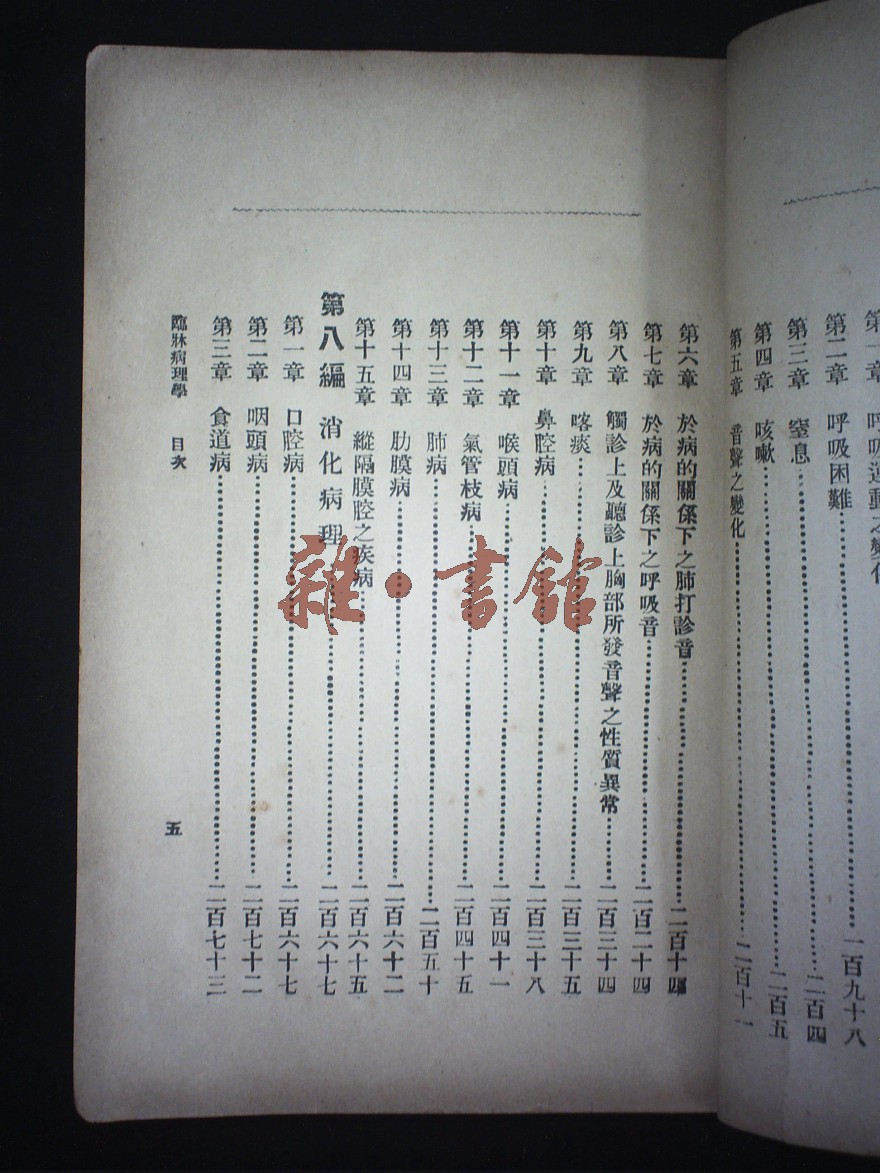 第二章　呼吸困難⋯⋯一百九十八
第三章　窒息⋯⋯二百四
第四章　咳嗽⋯⋯二百五
第五章　音聲之變化⋯⋯二百十一
第六章　於病的關係下之肺打診音⋯⋯二百十四
第七章　於病的關係下之呼吸音⋯⋯二百二十四
第八章　觸診上及聽診上胸部所發音聲之性質異常⋯⋯二百三十四
第九章　喀痰⋯⋯二百三十五
第十章　鼻腔病⋯⋯二百三十八
第十一章　喉頭病⋯⋯二百四十一
第十二章　氣管枝病⋯⋯二百四十五
第十三章　肺病⋯⋯二百五十
第十四章　肋膜病⋯⋯二百六十二
第十五章　縱隔膜腔之疾病⋯⋯二百六十五
第八編　消化病理⋯⋯二百六十七
第一章　口腔病⋯⋯二百六十七
第二章　咽頭病⋯⋯二百七十二
第三章　食道病⋯⋯二百七十三
臨牀病理學　目次　五
雜·書館